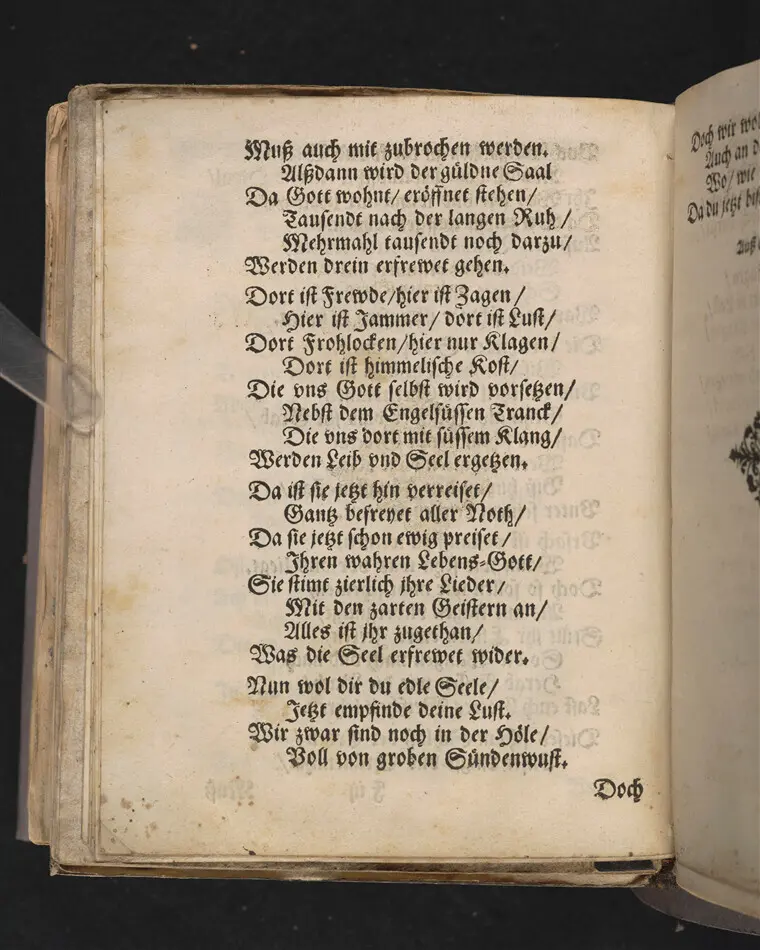 Muß auch mit zubrochen werden.
Alßdann wird der güldne Saal
Da Gott wohnt/ eröffnet stehen/
Tausendt nach der langen Ruh/
Mehrmahl tausendt noch darzu/
Werden drein erfrewet gehen.
Dort ist Frewde/hier ist Zagen/
Hier ist Jammer/ dort ist Lust/
Dort Frohlocken/hier nur Klagen/
Dort ist himmelische Kost/
Die vns Gott selbst wird vorsetzen/
Nebst dem Engelsüssen Tranck/
Die vns dort mit süssem Klang/
Werden Leib vnd Seel ergetzen.
Da ist sie jetzt hin verreiset/
Gantz befreyet aller Noth/
Da sie jetzt schon ewig preiset/
Ihren wahren Lebens-Gott/
Sie stimt zierlich jhre Lieder/
Mit den zarten Geistern an/
Alles ist jhr zugethan/
Was die Seel erfrewet wider.
Nun wol dir du edle Seele/
Jetzt empfinde deine Lust.
Wir zwar sind noch in der Höle/
Voll von groben Sündenwust.
Doch
Doch wir
Auch an
Wo/ wie
Da du jetzt